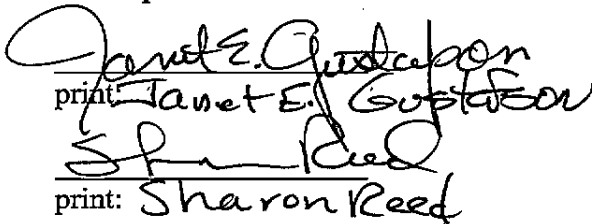 Janet E. Gustafson
print: Janet E. Gustafson
Sharon Reed
print: Sharon Reed